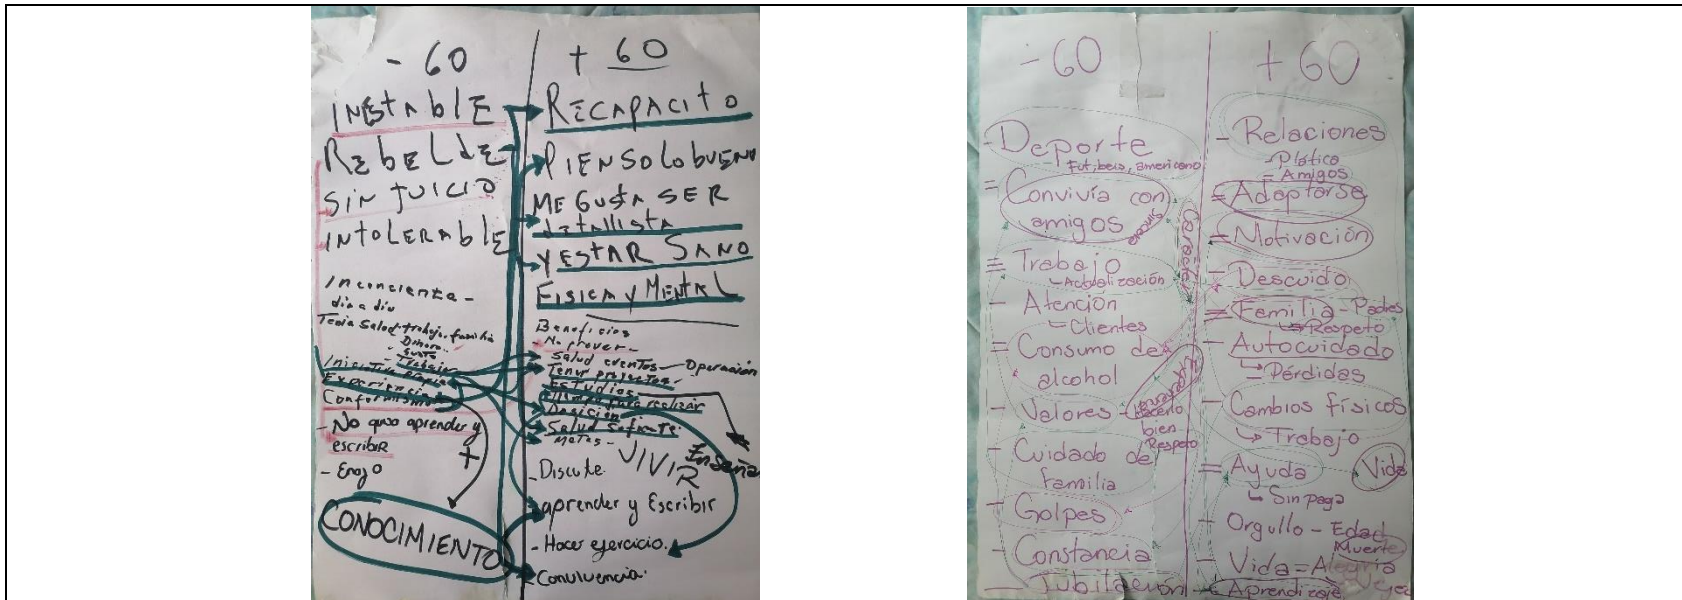 - 60
INESTABLE
REBELDE
SIN JUICIO
INTOLERABLE
Inconciente -
dia a dia
Tenia Salud-trabajo-familia
Dinero
Gusto
- Trabajar
Iniciativa Propia
Experiencia
Conformismo
- No quiso aprender y
escribir
- Enojo
+
CONOCIMIENTO
+ 60
RECAPACITO
PIENSO LO BUENO
ME GUSTA SER
detallista
Y ESTAR SANO
FISICA y MENTAL
Beneficios
- No prever -
Salud eventos - Operación
Tener proyectos -
Estudios
realizar
Decisión
Salud
metas -
VIVIR
Enseñar
- Discute
aprender y Escribir
- Hacer ejercicio.
Convivencia.
- 60
- Deporte
Fut, beis, americano
= Convivía con
amigos
Sincero
= Trabajo
Actualización
- Atención
- Clientes
= Consumo de
alcohol
- Valores -
Hacerlo
bien
Respeto
- Cuidado de
familia
- Golpes
- Constancia
- Jubilación
Carácter
+ 60
- Relaciones
- Plática
- Amigos
= Adaptarse
= Motivación
- Descuido
= Familia - Padres
Respeto
- Autocuidado
Pérdidas
- Cambios físicos
Trabajo
= Ayuda
Vida
Sin paga
- Orgullo - Edad
Muerte
- Vida = Alegría
Aprendizaje